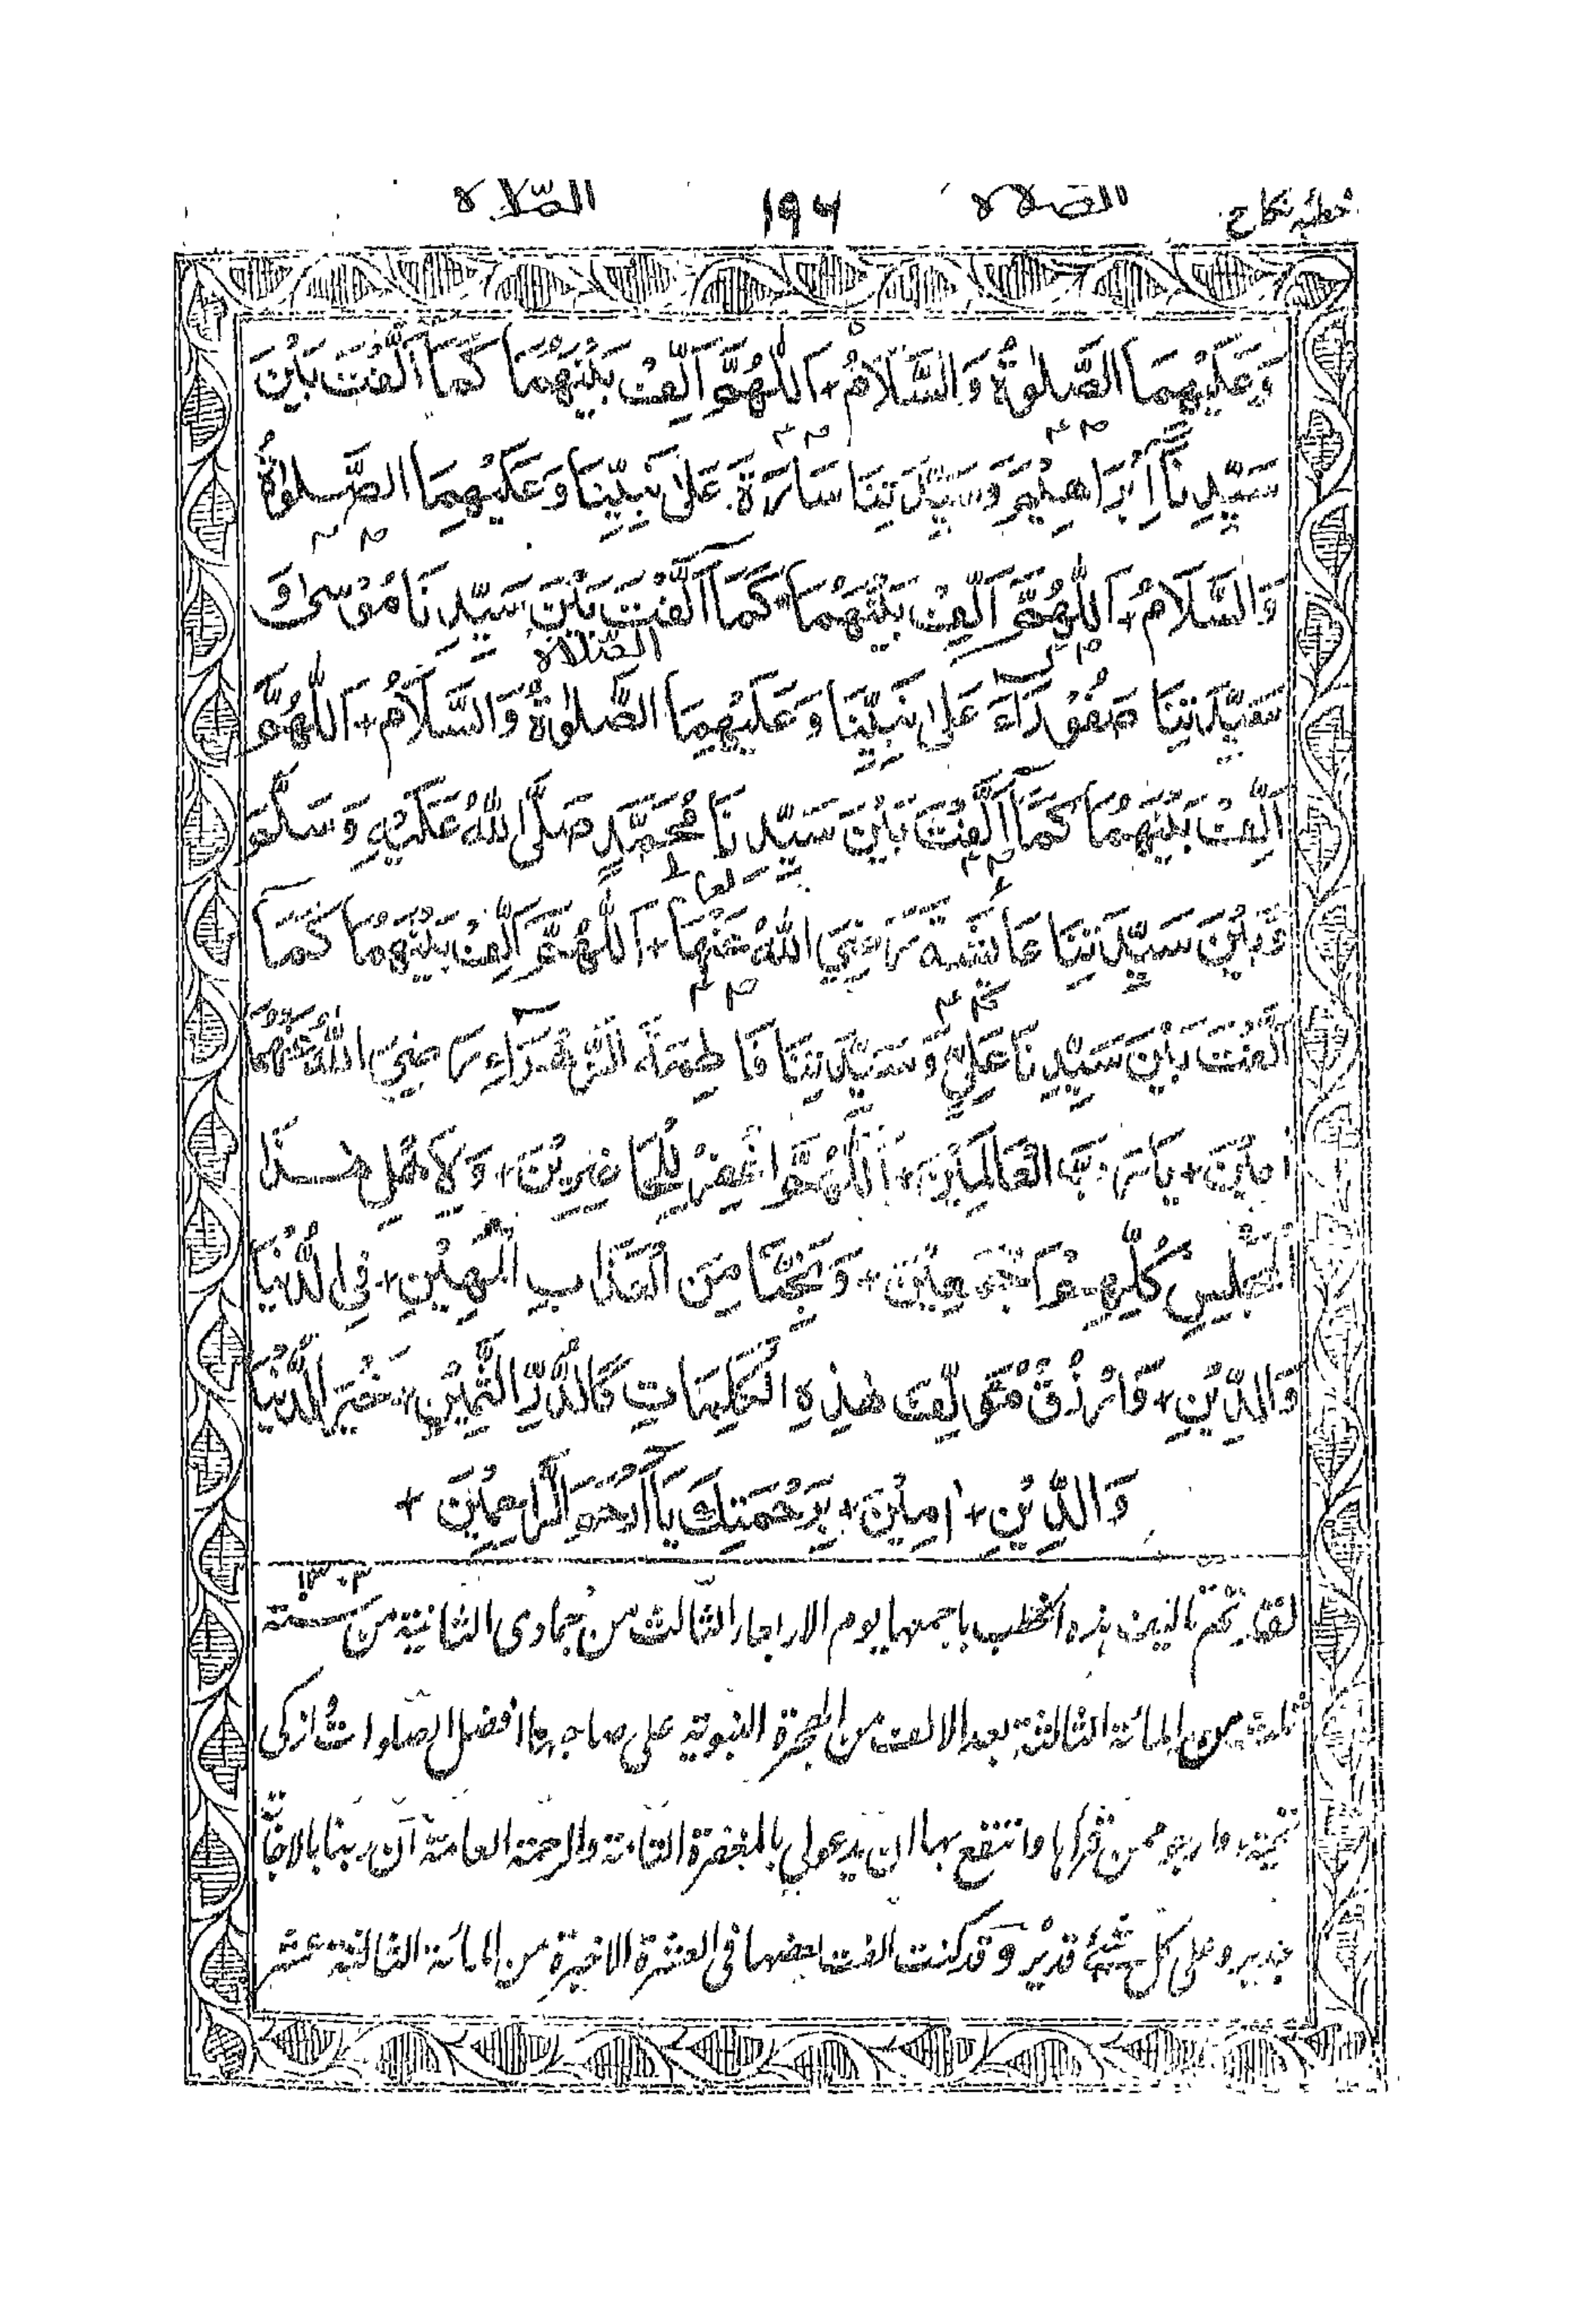 خطبہ نکاح الصلاه ١٩٦ الصّلاه
وَعَلَيْهِمَا الصَّلوٰةُ وَالسَّلَامُ + اَللّٰهُمَّ اَلِّفْ بَيْنَهُمَا كَمَا اَلَّفْتَ بَيْنَ
سَيِّدِنَا اِبْرَاهِيْمَ وَسَيِّدَتِنَا سَارَةَ عَلٰى نَبِيِّنَا وَعَلَيْهِمَا الصَّلوٰةُ
وَالسَّلَامُ + اَللّٰهُمَّ اَلِّفْ بَيْنَهُمَا كَمَا اَلَّفْتَ بَيْنَ سَيِّدِنَا مُوْسٰى وَ
الصّلاه
سَيِّدَتِنَا صَفُوْرَاءَ عَلٰى نَبِيِّنَا وَعَلَيْهِمَا الصَّلوٰةُ وَالسَّلَامُ + اَللّٰهُمَّ
اَلِّفْ بَيْنَهُمَا كَمَا اَلَّفْتَ بَيْنَ سَيِّدِنَا مُحَمَّدٍ صَلَّى اللهُ عَلَيْهِ وَسَلَّمَ
وَبَيْنَ سَيِّدَتِنَا عَائِشَةَ رَضِيَ اللهُ عَنْهَا + اَللّٰهُمَّ اَلِّفْ بَيْنَهُمَا كَمَا
اَلَّفْتَ بَيْنَ سَيِّدِنَا عَلِيٍّ وَسَيِّدَتِنَا فَاطِمَةَ الزَّهْرَاءِ رَضِيَ اللهُ عَنْهُمَا
اٰمِيْنَ + يَا رَبَّ الْعَالَمِيْنَ + اَللّٰهُمَّ اغْفِرْ لِلْحَاضِرِيْنَ + وَلِاَهْلِ هٰذَا
الْمَجْلِسِ كُلِّهِمْ اَجْمَعِيْنَ + وَنَجِّنَا مِنَ الْعَذَابِ الْمُهِيْنِ + فِى الدُّنْيَا
وَالدِّيْنِ + وَارْزُقْ مُؤَلِّفَ هٰذِهِ الْكَلِمَاتِ كَالدُّرِّ الثَّمِيْنِ + خَيْرَ الدُّنْيَا
وَالدِّيْنِ + اٰمِيْنَ + بِرَحْمَتِكَ يَا اَرْحَمَ الرَّاحِمِيْنَ +
لقد تم تاليف هذه الخطب باجمعها يوم الاربعاء الثالث من جمادى الثانية من سنة ١٣٠٣
ثلث من المائة الثالثة بعد الالف من الهجرة النبوية على صاحبها افضل الصلوات وازكى
تحية، وارجو ممن قرأها وانتفع بها ان يدعو لي بالمغفرة التامة والرحمة العامة ان ربنا بالاجابة
جدير وعلى كل شيئ قدير وقد كنت الفت بعضها فى العشرة الاخيرة من المائة الثالثة عشر